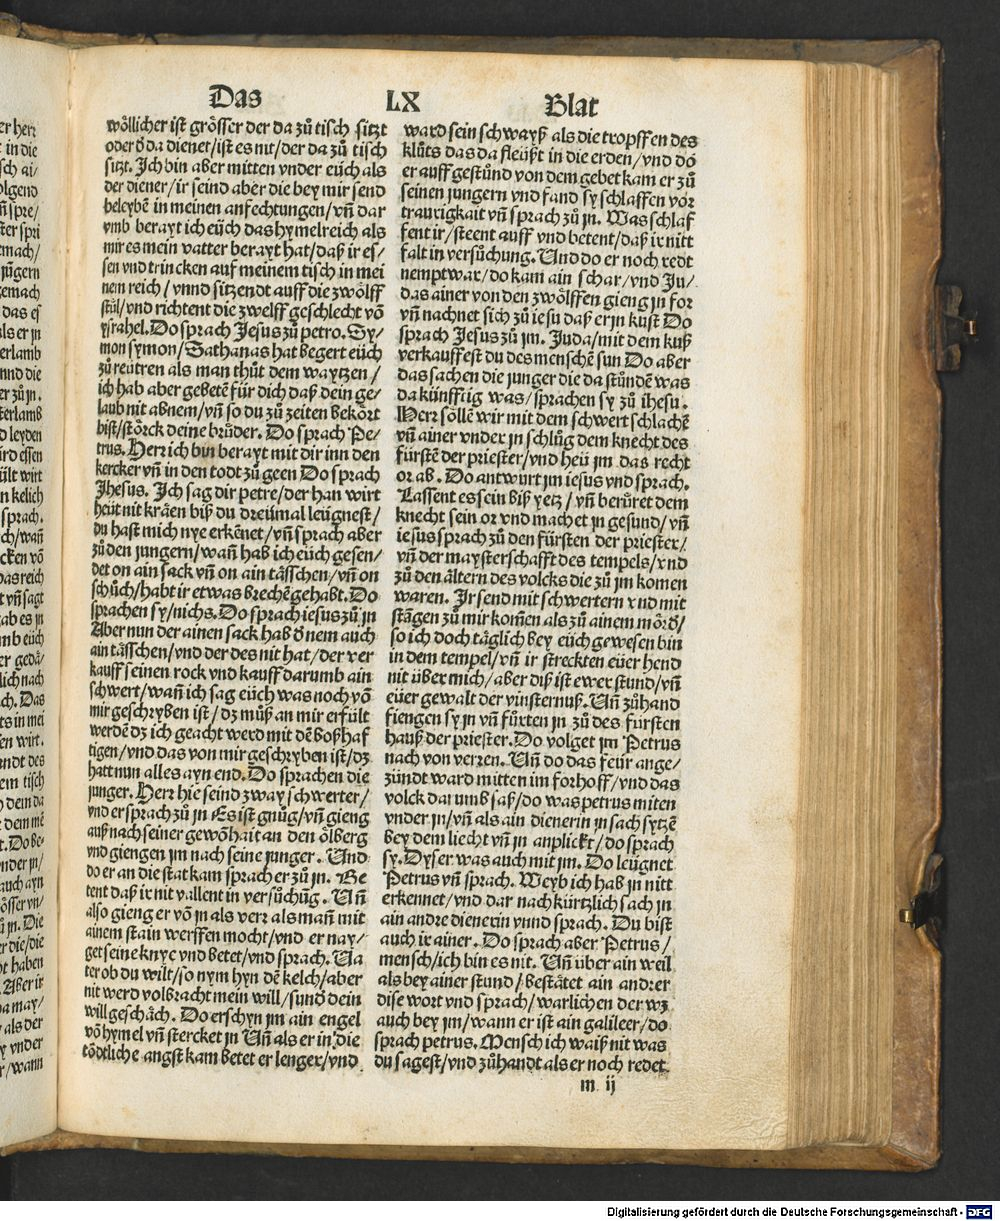 Das LX Blat
wöllicher ist grösser der da zů tisch sitzt
oder d̕ da dienet/ist es nit/der da zů tisch
sitzt. Ich bin aber mitten vnder eüch als
der diener/ir seind aber die bey mir send
beleybē in meinen anfechtungen/vn̄ dar
vmb berayt ich eüch das hymelreich als
mir es mein vatter berayt hat/daß ir es/
sen vnd trincken auf meinem tisch in mei
nem reich/vnnd sitzendt auff die zwölff
stül/vnd richtent die zwelff geschlecht vō
ysrahel. Do sprach Jesus zů petro. Sy/
mon symon/Sathanas hat begert eüch
zů reütren als man thůt dem waytzen/
ich hab aber gebetē für dich daß dein ge/
laub nit abnem/vn̄ so du zů zeiten bekört
bist/störck deine brůder. Do sprach Pe/
trus. Herr ich bin berayt mit dir inn den
kercker vn̄ in den todt zů geen Do sprach
Jhesus. Ich sag dir petre/der han wirt
heüt nit kräen biß du dreümal leügnest/
du hast mich nye erkēnet/vn̄ sprach aber
zů den jungern/wan̄ hab ich eüch gesen/
det on ain sack vn̄ on ain tässchen/vn̄ on
schůch/habt ir etwas brechē gehabt. Do
sprachen sy/nichs. Do sprach iesus zů jn
Aber nun der ainen sack hab d̕ nem auch
ain tässchen/vnd der des nit hat/der ver
kauff seinen rock vnd kauff darumb ain
schwert/wan̄ ich sag eüch was noch vō
mir geschryben ist/dz můß an mir erfült
werdē dz ich geacht werd mit dē boßhaf
tigen/vnd das von mir geschryben ist/dz
hatt nun alles ayn end. Do sprachen die
junger. Herr hie seind zway schwerter/
vnd er sprach zů jn Es ist gnůg/vn̄ gieng
auß nach seiner gewöhait an den ölberg
vnd giengen jm nach seine junger. Vnd
do er an die stat kam sprach er zů jn. Be
tent daß ir nit vallent in versůchūg. Vn̄
also gieng er vō jn als verr als man̄ mit
ainem stain werffen mocht/vnd er nay/
get seine knye vnd betet/vnd sprach. Va
ter ob du wilt/so nym hyn dē kelch/aber
nit werd volbracht mein will/sund̕ dein
will geschäch. Do erschyn jm ain engel
vō hymel vn̄ stercket jn Vn̄ als er in die
tödtliche angst kam betet er lenger/vnd
ward sein schwayß als die tropffen des
klůts das da fleüßt in die erden/vnd do
er auff gestůnd von dem gebet kam er zů
seinen jungern vnd fand sy schlaffen vor
traurigkait vn̄ sprach zů jn. Was schlaf
fent ir/steent auff vnd betent/daß ir nitt
falt in versůchung. Vnd do er noch redt
nempt war/do kam ain schar/vnd Ju/
das ainer von den zwölffen gieng jn for
vn̄ nachnet sich zů iesu daß er jn kust Do
sprach Jesus zů jm. Juda/mit dem kuß
verkauffest du des menschē sun Do aber
das sachen die junger die da stůndē was
da künfftig was/sprachen sy zů ihesu.
Herr söllē wir mit dem schwert schlachē
vn̄ ainer vnder jn schlůg dem knecht des
fürstē der priester/vnd heü jm das recht
or ab. Do antwurt jm iesus vnd sprach.
Lassent es sein biß yetz/vn̄ berůret dem
knecht sein or vnd machet jn gesund/vn̄
iesus sprach zů den fürsten der priester/
vn̄ der maysterschafft des tempels/vnd
zů den ältern des volcks die zů jm komen
waren. Ir send mit schwertern vnd mit
stāgen zů mir kom̄en als zů ainem mörd̕/
so ich doch täglich bey eüch gewesen bin
in dem tempel/vn̄ ir streckten eüer hend
nit über mich/aber diß ist ewer stund/vn̄
eüer gewalt der vinsternuß. Vn̄ zůhand
fiengen sy jn vn̄ fůrten jn zů des fürsten
hauß der priester. Do volget jm Petrus
nach von verren. Vn̄ do das feür ange/
zündt ward mitten im forhoff/vnd das
volck darumb saß/do was petrus miten
vnder jn/vn̄ als ain dienerin jn sach sytzē
bey dem liecht vn̄ jn anplickt/do sprach
sy. Dyser was auch mit jm. Do leügnet
Petrus vn̄ sprach. Weyb ich hab jn nitt
erkennet/vnd dar nach kürtzlich sach jn
ain andre dienerin vnnd sprach. Du bist
auch ir ainer. Do sprach aber Petrus/
mensch/ich bin es nit. Vn̄ über ain weil
als bey ainer stund/bestätet ain andrer
dise wort vnd sprach/warlichen der wz
auch bey jm/wann er ist ain galileer/do
sprach petrus. Mensch ich waiß nit was
du sagest/vnd zůhandt als er noch redet
m ij
Digitalisierung gefördert durch die Deutsche Forschungsgemeinschaft - DFG